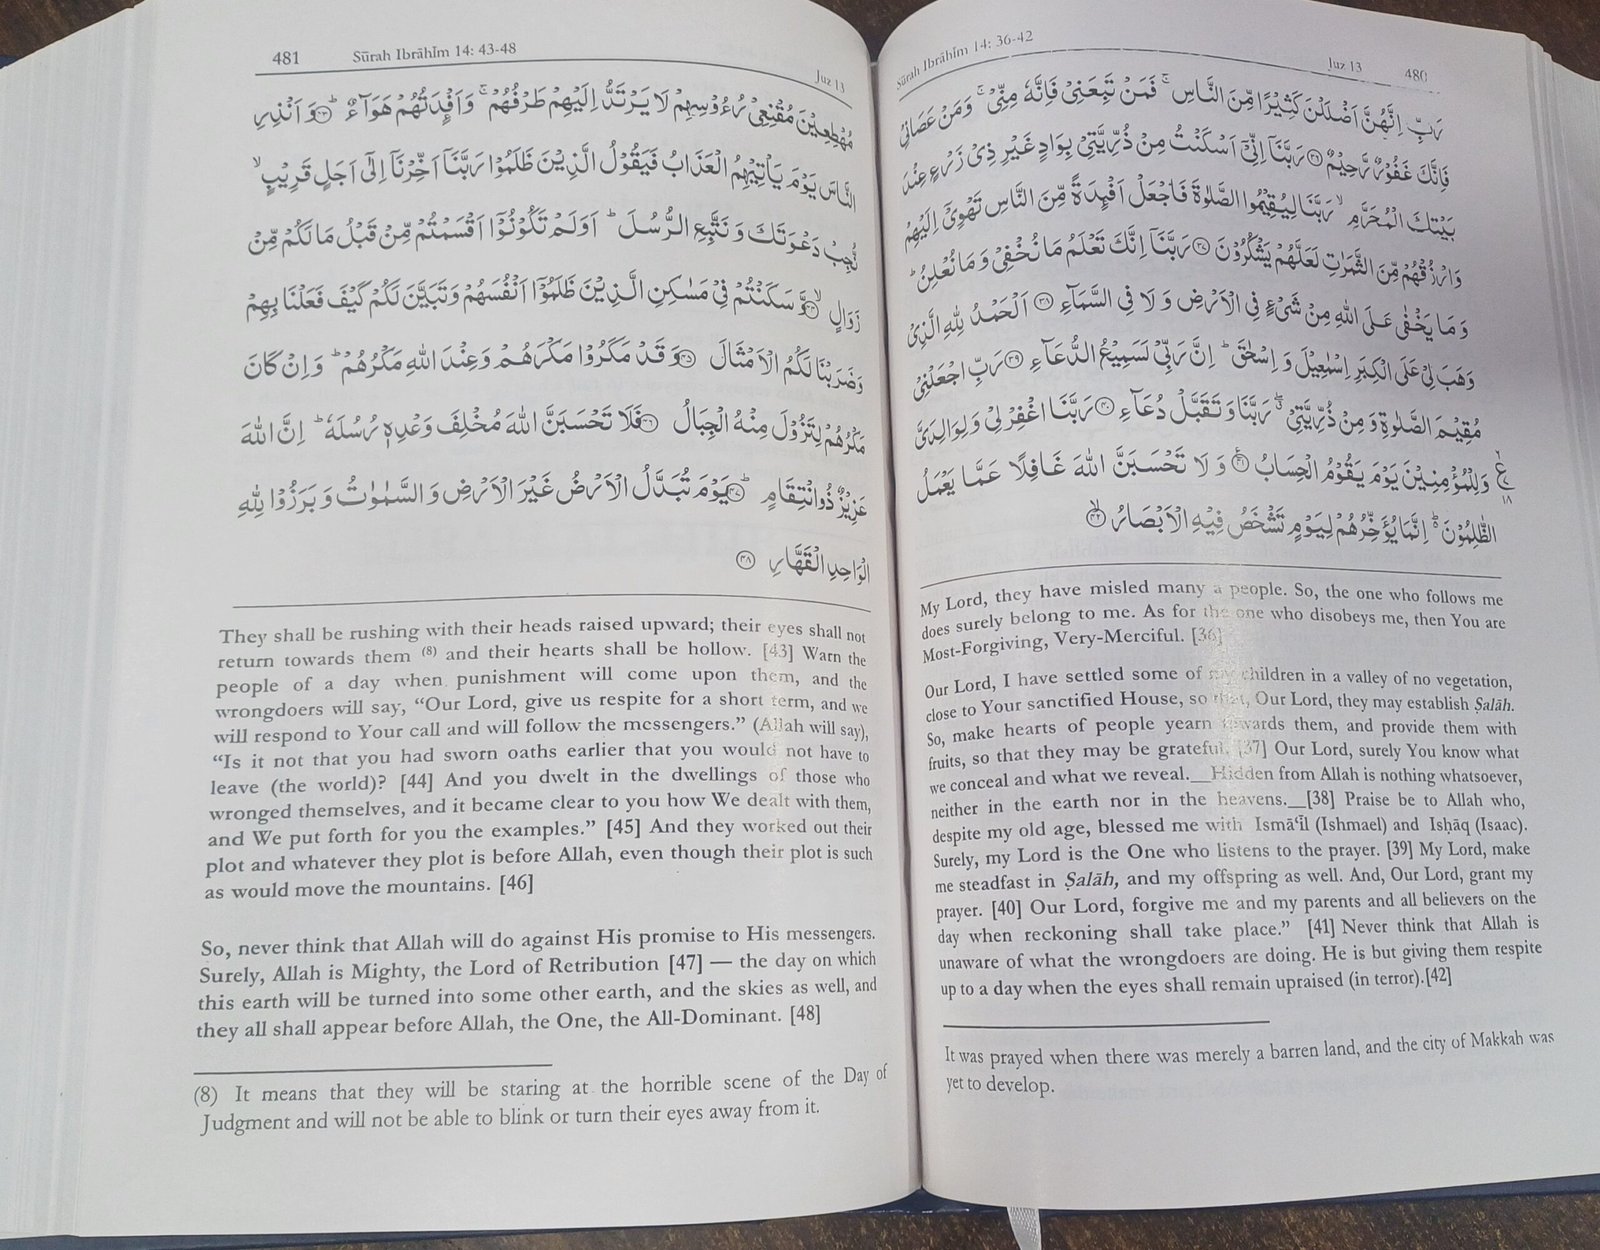 Sūrah Ibrāhīm 14: 36-42 Juz 13 480
رَبِّ اِنَّهُنَّ اَضْلَلْنَ كَثِيْرًا مِّنَ النَّاسِ ۚ فَمَنْ تَبِعَنِيْ فَاِنَّهٗ مِنِّيْ ۚ وَمَنْ عَصَانِيْ
فَاِنَّكَ غَفُوْرٌ رَّحِيْمٌ ﴿۳۶﴾ رَبَّنَاۤ اِنِّيْۤ اَسْكَنْتُ مِنْ ذُرِّيَّتِيْ بِوَادٍ غَيْرِ ذِيْ زَرْعٍ عِنْدَ
بَيْتِكَ الْمُحَرَّمِ ۙ رَبَّنَا لِيُقِيْمُوا الصَّلٰوةَ فَاجْعَلْ اَفْـِٕدَةً مِّنَ النَّاسِ تَهْوِيْۤ اِلَيْهِمْ
وَارْزُقْهُمْ مِّنَ الثَّمَرٰتِ لَعَلَّهُمْ يَشْكُرُوْنَ ﴿۳۷﴾ رَبَّنَاۤ اِنَّكَ تَعْلَمُ مَا نُخْفِيْ وَمَا نُعْلِنُ ؕ
وَمَا يَخْفٰى عَلَى اللّٰهِ مِنْ شَيْءٍ فِي الْاَرْضِ وَلَا فِي السَّمَآءِ ﴿۳۸﴾ اَلْحَمْدُ لِلّٰهِ الَّذِيْ
وَهَبَ لِيْ عَلَى الْكِبَرِ اِسْمٰعِيْلَ وَاِسْحٰقَ ؕ اِنَّ رَبِّيْ لَسَمِيْعُ الدُّعَآءِ ﴿۳۹﴾ رَبِّ اجْعَلْنِيْ
مُقِيْمَ الصَّلٰوةِ وَمِنْ ذُرِّيَّتِيْ ۖ رَبَّنَا وَتَقَبَّلْ دُعَآءِ ﴿۴۰﴾ رَبَّنَا اغْفِرْ لِيْ وَلِوَالِدَيَّ
وَلِلْمُؤْمِنِيْنَ يَوْمَ يَقُوْمُ الْحِسَابُ ﴿۴۱﴾ وَلَا تَحْسَبَنَّ اللّٰهَ غَافِلًا عَمَّا يَعْمَلُ
الظّٰلِمُوْنَ ؕ اِنَّمَا يُؤَخِّرُهُمْ لِيَوْمٍ تَشْخَصُ فِيْهِ الْاَبْصَارُ ﴿۴۲﴾
My Lord, they have misled many a people. So, the one who follows me
does surely belong to me. As for the one who disobeys me, then You are
Most-Forgiving, Very-Merciful. [36]
Our Lord, I have settled some of my children in a valley of no vegetation,
close to Your sanctified House, so that, Our Lord, they may establish Ṣalāh.
So, make hearts of people yearn towards them, and provide them with
fruits, so that they may be grateful. [37] Our Lord, surely You know what
we conceal and what we reveal.__Hidden from Allah is nothing whatsoever,
neither in the earth nor in the heavens.__[38] Praise be to Allah who,
despite my old age, blessed me with Ismā‘īl (Ishmael) and Isḥāq (Isaac).
Surely, my Lord is the One who listens to the prayer. [39] My Lord, make
me steadfast in Ṣalāh, and my offspring as well. And, Our Lord, grant my
prayer. [40] Our Lord, forgive me and my parents and all believers on the
day when reckoning shall take place.” [41] Never think that Allah is
unaware of what the wrongdoers are doing. He is but giving them respite
up to a day when the eyes shall remain upraised (in terror).[42]
It was prayed when there was merely a barren land, and the city of Makkah was
yet to develop.
481 Sūrah Ibrāhīm 14: 43-48 Juz 13
مُهْطِعِيْنَ مُقْنِعِيْ رُءُوْسِهِمْ لَا يَرْتَدُّ اِلَيْهِمْ طَرْفُهُمْ ۚ وَاَفْـِٕدَتُهُمْ هَوَآءٌ ؕ﴿۴۳﴾ وَاَنْذِرِ
النَّاسَ يَوْمَ يَاْتِيْهِمُ الْعَذَابُ فَيَقُوْلُ الَّذِيْنَ ظَلَمُوْا رَبَّنَاۤ اَخِّرْنَاۤ اِلٰۤى اَجَلٍ قَرِيْبٍ ۙ
نُّجِبْ دَعْوَتَكَ وَنَتَّبِعِ الرُّسُلَ ؕ اَوَلَمْ تَكُوْنُوْۤا اَقْسَمْتُمْ مِّنْ قَبْلُ مَا لَكُمْ مِّنْ
زَوَالٍ ۙ﴿۴۴﴾ وَّسَكَنْتُمْ فِيْ مَسٰكِنِ الَّذِيْنَ ظَلَمُوْۤا اَنْفُسَهُمْ وَتَبَيَّنَ لَكُمْ كَيْفَ فَعَلْنَا بِهِمْ
وَضَرَبْنَا لَكُمُ الْاَمْثَالَ ﴿۴۵﴾ وَقَدْ مَكَرُوْا مَكْرَهُمْ وَعِنْدَ اللّٰهِ مَكْرُهُمْ ؕ وَاِنْ كَانَ
مَكْرُهُمْ لِتَزُوْلَ مِنْهُ الْجِبَالُ ﴿۴۶﴾ فَلَا تَحْسَبَنَّ اللّٰهَ مُخْلِفَ وَعْدِهٖ رُسُلَهٗ ؕ اِنَّ اللّٰهَ
عَزِيْزٌ ذُو انْتِقَامٍ ؕ﴿۴۷﴾ يَوْمَ تُبَدَّلُ الْاَرْضُ غَيْرَ الْاَرْضِ وَالسَّمٰوٰتُ وَبَرَزُوْا لِلّٰهِ
الْوَاحِدِ الْقَهَّارِ ﴿۴۸﴾
They shall be rushing with their heads raised upward; their eyes shall not
return towards them (8) and their hearts shall be hollow. [43] Warn the
people of a day when punishment will come upon them, and the
wrongdoers will say, “Our Lord, give us respite for a short term, and we
will respond to Your call and will follow the messengers.” (Allah will say),
“Is it not that you had sworn oaths earlier that you would not have to
leave (the world)? [44] And you dwelt in the dwellings of those who
wronged themselves, and it became clear to you how We dealt with them,
and We put forth for you the examples.” [45] And they worked out their
plot and whatever they plot is before Allah, even though their plot is such
as would move the mountains. [46]
So, never think that Allah will do against His promise to His messengers.
Surely, Allah is Mighty, the Lord of Retribution [47] — the day on which
this earth will be turned into some other earth, and the skies as well, and
they all shall appear before Allah, the One, the All-Dominant. [48]
(8) It means that they will be staring at the horrible scene of the Day of
Judgment and will not be able to blink or turn their eyes away from it.